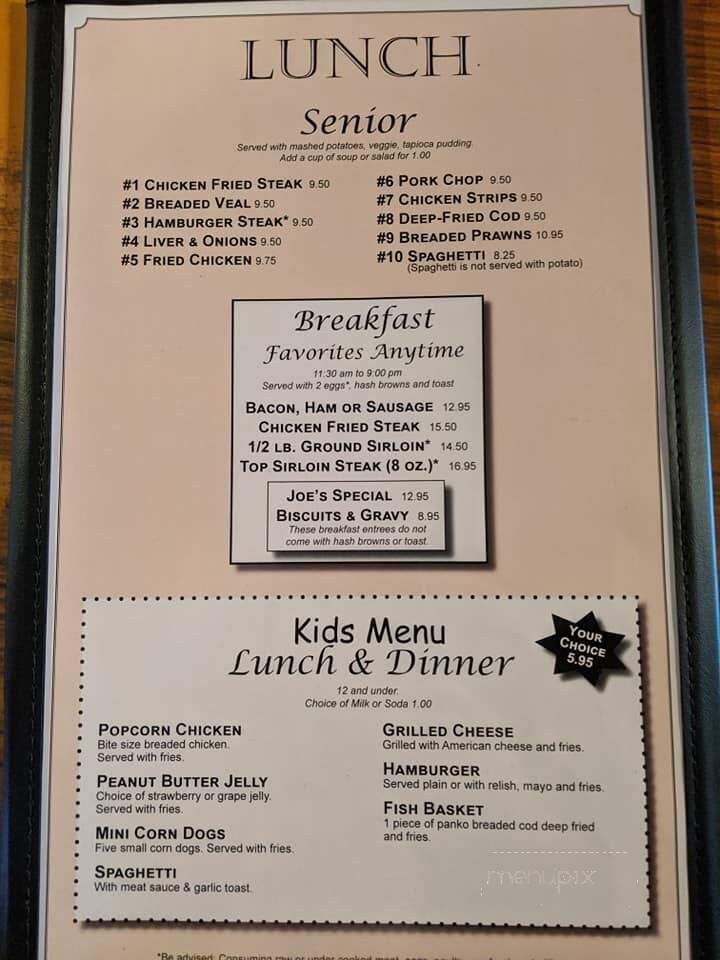 LUNCH
Senior
Served with mashed potatoes, veggie, tapioca pudding.
Add a cup of soup or salad for 1.00
#1 CHICKEN FRIED STEAK 9.50
#2 BREADED VEAL 9.50
#3 HAMBURGER STEAK* 9.50
#4 LIVER & ONIONS 9.50
#5 FRIED CHICKEN 9.75
#6 PORK CHOP 9.50
#7 CHICKEN STRIPS 9.50
#8 DEEP-FRIED COD 9.50
#9 BREADED PRAWNS 10.95
#10 SPAGHETTI 8.25
(Spaghetti is not served with potato)
Breakfast
Favorites Anytime
11:30 am to 9:00 pm
Served with 2 eggs*, hash browns and toast
BACON, HAM OR SAUSAGE 12.95
CHICKEN FRIED STEAK 15.50
1/2 LB. GROUND SIRLOIN* 14.50
TOP SIRLOIN STEAK (8 OZ.)* 16.95
JOE'S SPECIAL 12.95
BISCUITS & GRAVY 8.95
These breakfast entrees do not
come with hash browns or toast.
Kids Menu
Lunch & Dinner
12 and under.
Choice of Milk or Soda 1.00
YOUR
CHOICE
5.95
POPCORN CHICKEN
Bite size breaded chicken.
Served with fries.
PEANUT BUTTER JELLY
Choice of strawberry or grape jelly.
Served with fries.
MINI CORN DOGS
Five small corn dogs. Served with fries.
SPAGHETTI
With meat sauce & garlic toast.
GRILLED CHEESE
Grilled with American cheese and fries.
HAMBURGER
Served plain or with relish, mayo and fries.
FISH BASKET
1 piece of panko breaded cod deep fried
and fries.
menupix
*Be advised: Consuming raw or under cooked meat, eggs,